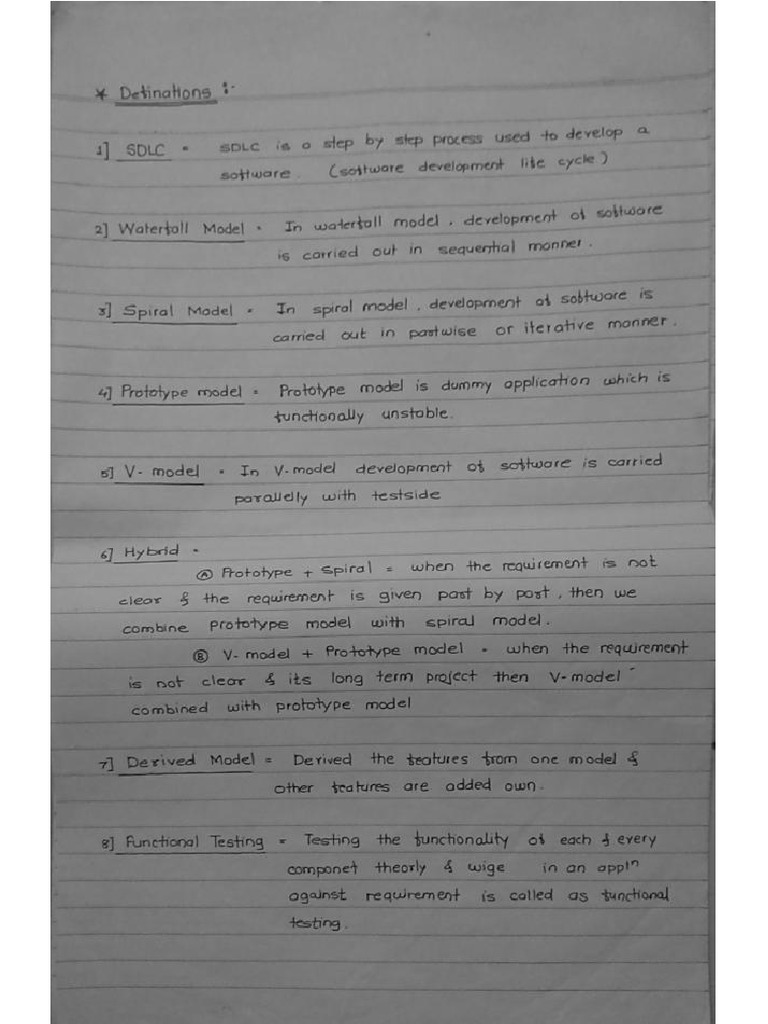 * Definations :-
1] SDLC = SDLC is a step by step process used to develop a
software. (software development life cycle)
2] Waterfall Model = In waterfall model, development of software
is carried out in sequential manner.
3] Spiral Model = In spiral model, development of software is
carried out in partwise or iterative manner.
4] Prototype model = Prototype model is dummy application which is
functionally unstable.
5] V-model = In V-model development of software is carried
parallelly with testside
6] Hybrid =
Ⓐ Prototype + Spiral = when the requirement is not
clear & the requirement is given part by part, then we
combine prototype model with spiral model.
Ⓑ V-model + Prototype model = when the requirement
is not clear & its long term project then V-model
combined with prototype model
7] Derived Model = Derived the features from one model &
other features are added own.
8] Functional Testing = Testing the functionality of each & every
componet theorly & wige in an appln
against requirement is called as functional
testing.